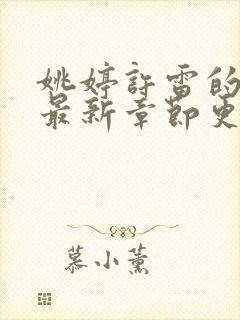 姚婷許雷的
最新章節更
慕小薰